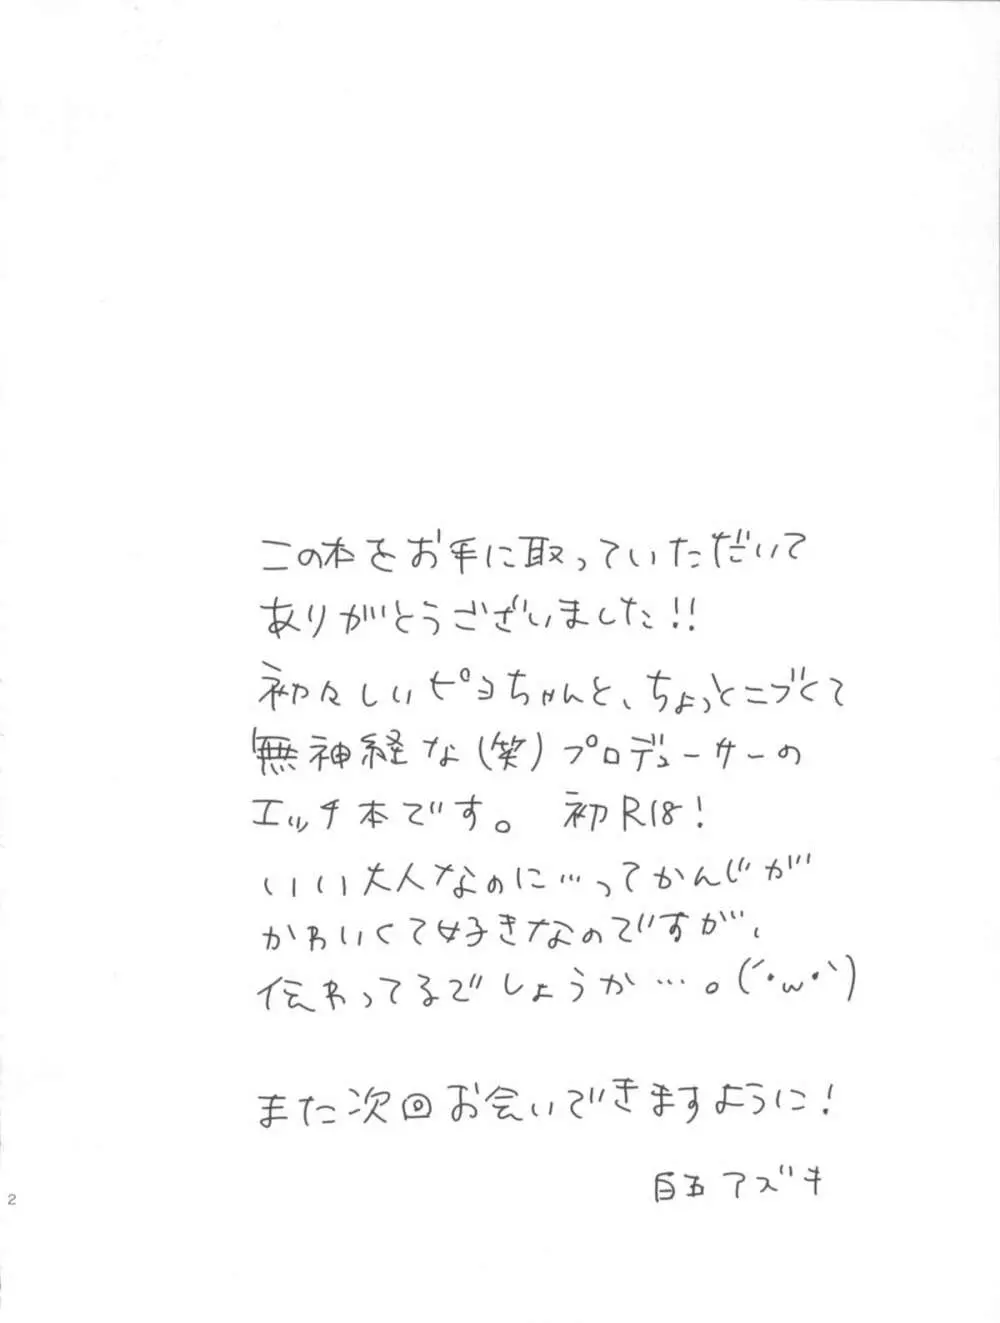 この本をお手に取っていただいて
ありがとうございました!!
初々しいピヨちゃんと、ちょっとニブくて
無神経な(笑)プロデューサーの
エッチ本です。 初R18!
いい大人なのに…ってかんじが
かわいくて好きなのですが、
伝わってるでしょうか…。(´・ω・`)
また次回お会いできますように!
白玉アズキ
2